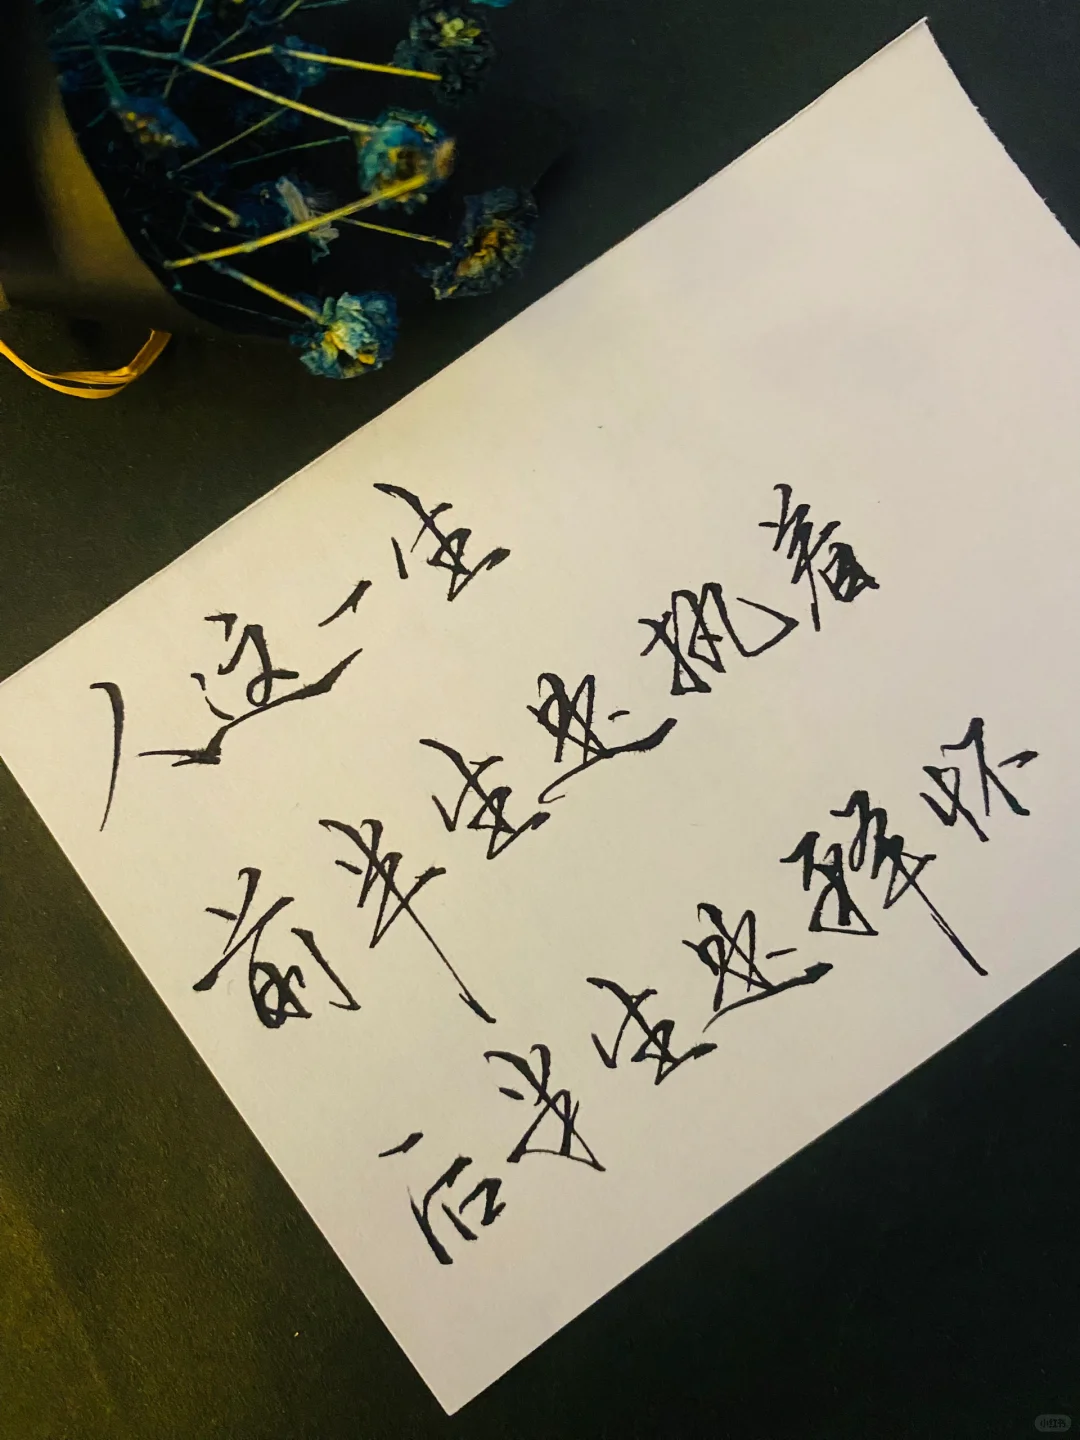 人这一生
前半生是执着
后半生是释怀
小红书